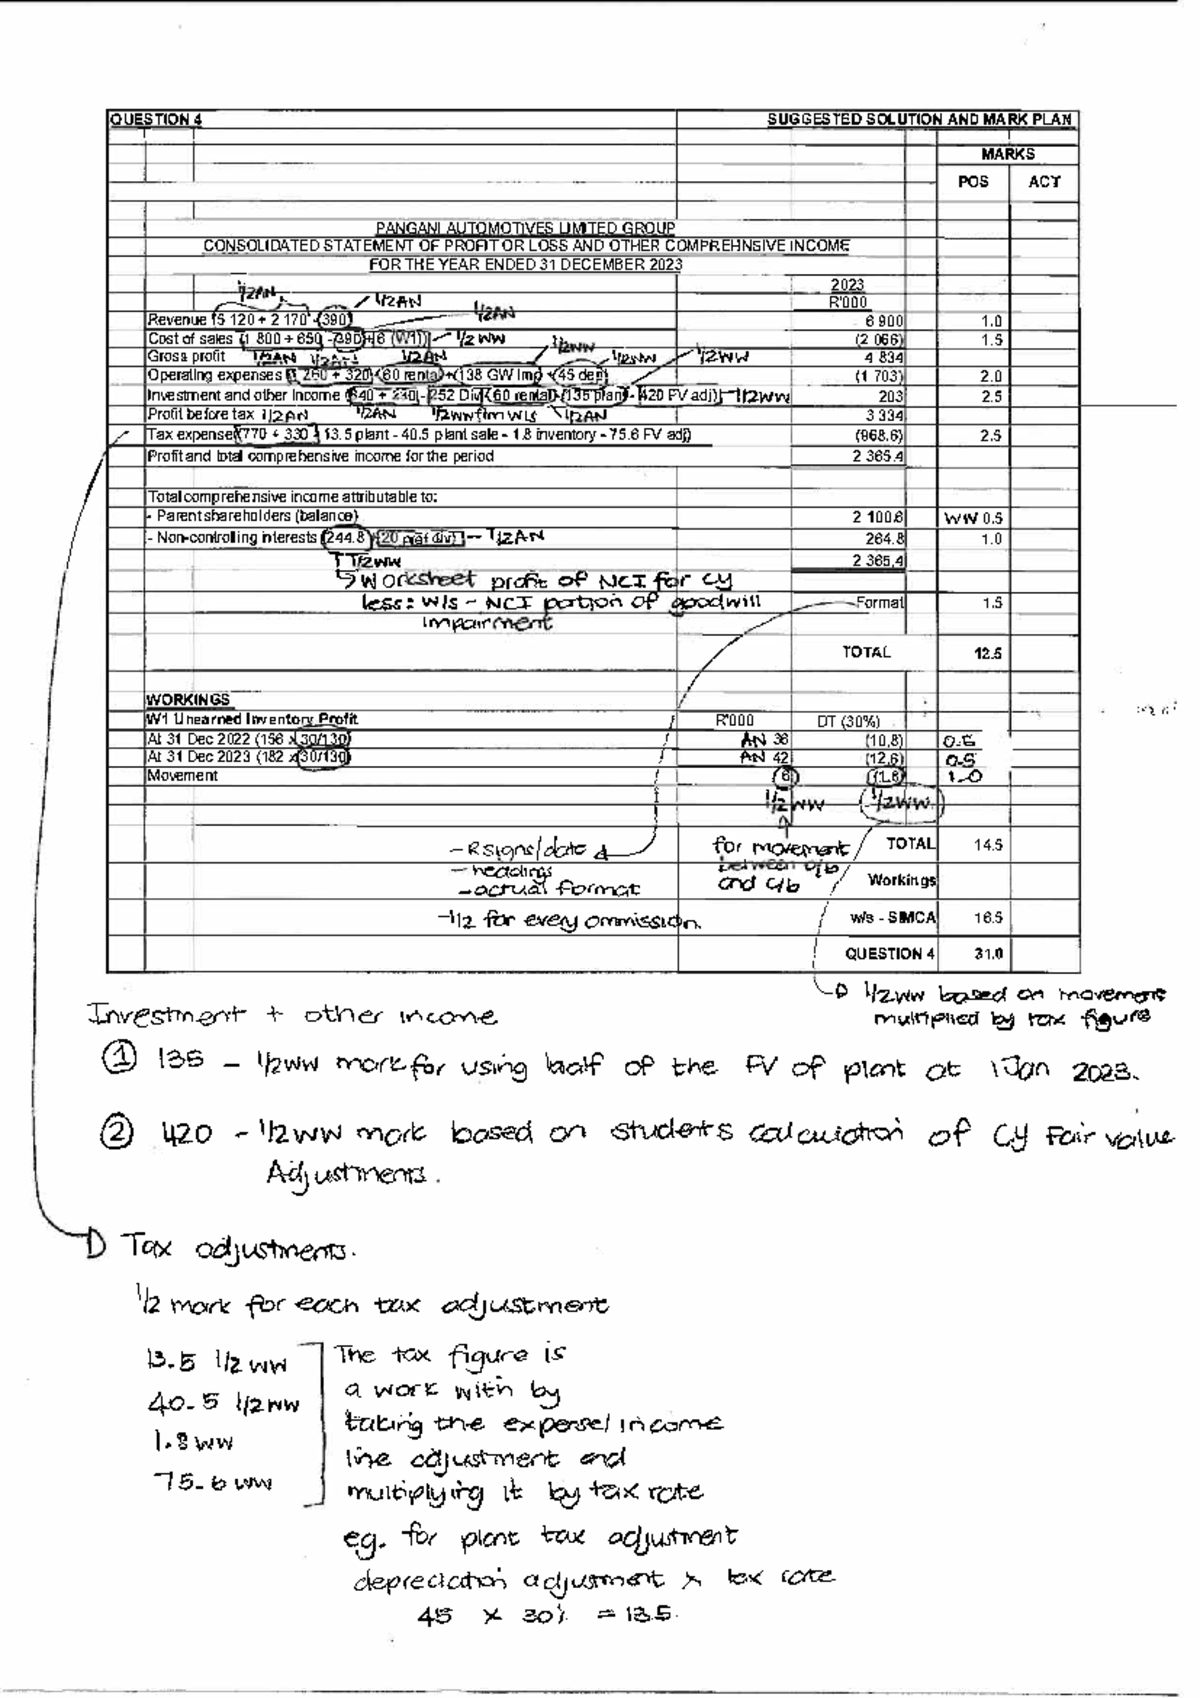 QUESTION 4 SUGGESTED SOLUTION AND MARK PLAN
MARKS
POS ACT
PANGANI AUTOMOTIVES LIMITED GROUP
CONSOLIDATED STATEMENT OF PROFIT OR LOSS AND OTHER COMPREHNSIVE INCOME
FOR THE YEAR ENDED 31 DECEMBER 2023
2023
1/2AN 1/2AN R'000
1/2AN
Revenue (5 120 + 2 170 - (390) 6 900 1.0
Cost of sales (1 800 + 650 - (390)+6 (W1)) 1/2 WW (2 066) 1.5
Gross profit 1/2AN 1/2AN 1/2AN 1/2WW 1/2WW 1/2WW 4 834
Operating expenses (1 260 + 320) (60 rental)+(138 GW Imp) + (45 dep) (1 703) 2.0
Investment and other Income (640 + 230) - (252 Div) (60 rental) (135 plant) - (420 FV adj) 1/2WW 203 2.5
Profit before tax 1/2AN 1/2AN 1/2WW frm W/s 1/2AN 3 334
Tax expense (770 + 330 - 13.5 plant - 40.5 plant sale - 1.8 inventory - 75.6 FV adj) (968.6) 2.5
Profit and total comprehensive income for the period 2 365.4
Total comprehensive income attributable to:
- Parent shareholders (balance) 2 100.6 WW 0.5
- Non-controlling interests (244.8) (20 pref div) - 1/2AN 264.8 1.0
1/2WW 2 365,4
Worksheet profit of NCI for CY
less: W/s - NCI portion of goodwill Format 1.5
impairment
TOTAL 12.5
WORKINGS
W1 Unearned Inventory Profit R'000 DT (30%)
At 31 Dec 2022 (156 x 30/130) AN 36 (10,8) 0.5
At 31 Dec 2023 (182 x 30/130) AN 42 (12,6) 0.5
Movement 6 (1.8) 1.0
1/2 WW 1/2WW
- R signs/date for movement TOTAL 14.5
- headings between o/b
- actual format and c/b Workings
-1/2 for every ommission. w/s - SIMCA 16.5
QUESTION 4 31.0
1/2WW based on movement
multiplied by tax figure
Investment + other income
① 135 - 1/2WW mark for using half of the FV of plant at 1 Jan 2023.
② 420 - 1/2WW mark based on students calculation of CY Fair value
Adjustments.
Tax adjustments.
1/2 mark for each tax adjustment
13.5 1/2 WW
40.5 1/2WW
1.8 WW
75.6 WW
The tax figure is
a work with by
taking the expense/income
line adjustment and
multiplying it by tax rate
eg. for plant tax adjustment
depreciation adjustment x tax rate
45 x 30% = 13.5.